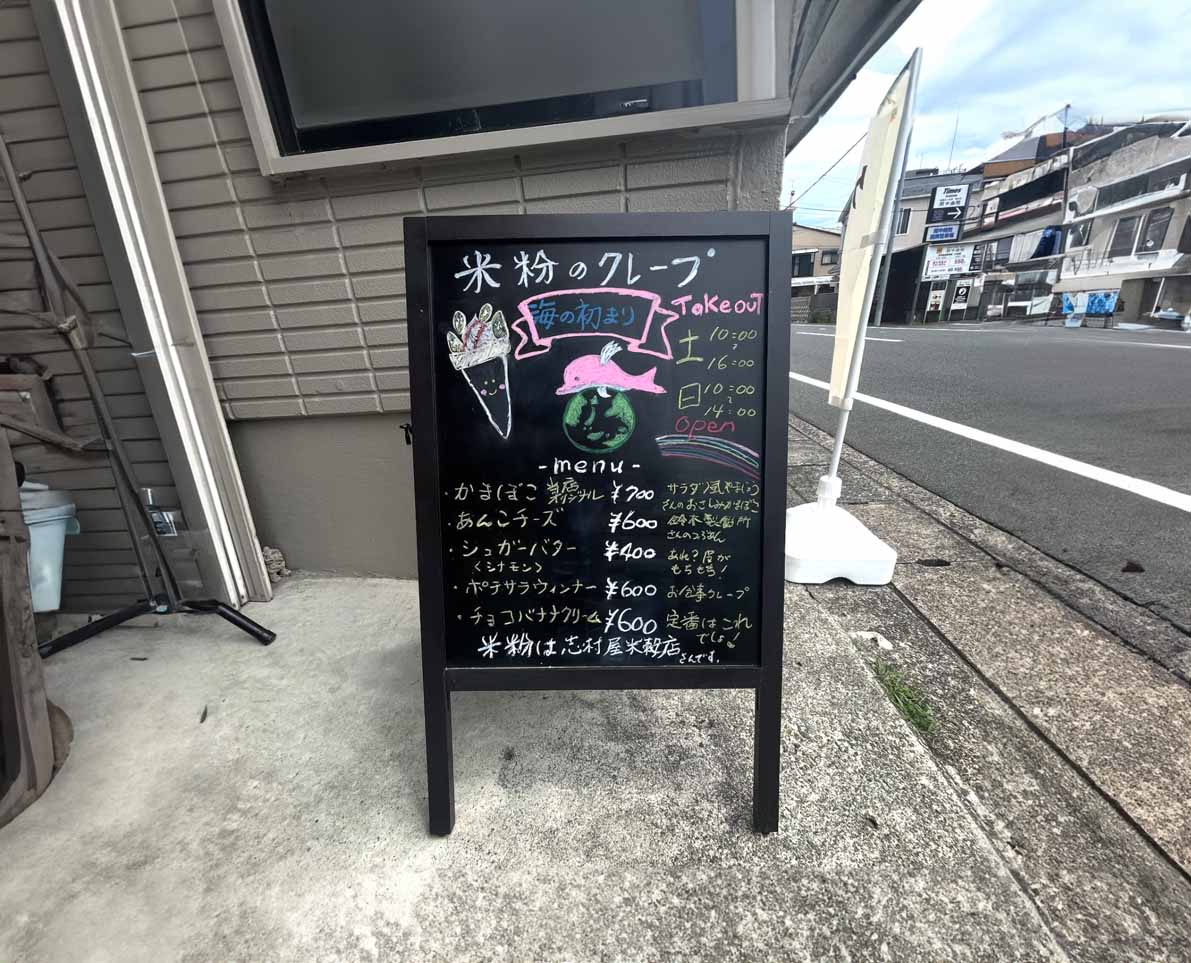 米粉のクレープ
海の初まり
Takeout
土 10:00
〜
16:00
日 10:00
〜
14:00
open
-menu-
・かまぼこ 当店オリジナル ¥700
サラダ風やまじょう
さんのおさしみかまぼこ
・あんこチーズ ¥600
鈴木製餡所
さんのつぶあん
・シュガーバター ¥400
〈シナモン〉
あれ?皮が
もちもち!
・ポテサラウィンナー ¥600 お食事クレープ
・チョコバナナクリーム ¥600 定番はこれ
でしょ!
米粉は、志村屋米穀店
さんです。
Times